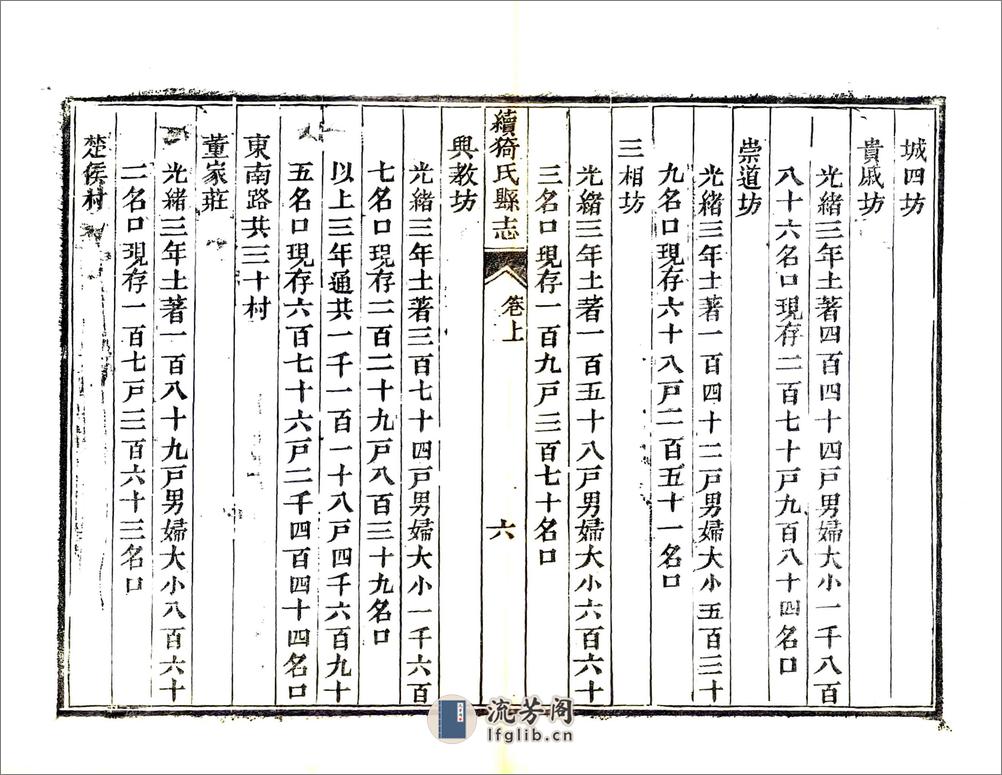 城四坊
貴戚坊
光緒三年土著四百四十四戸男婦大小一千八百
八十六名口現存二百七十戸九百八十四名口
崇道坊
光緒三年土著一百四十二戸男婦大小五百三十
九名口現存六十八戸二百五十一名口
三相坊
光緒三年土著一百五十八戸男婦大小六百六十
三名口現存一百九戸三百七十名口
續猗氏縣志
卷上
六
興教坊
光緒三年土著三百七十四戸男婦大小一千六百
七名口現存二百二十九戸八百三十九名口
以上三年通共一千一百一十八戸四千六百九十
五名口現存六百七十六戸二千四百四十四名口
東南路共三十村
董家莊
光緒三年土著一百八十九戸男婦大小八百六十
二名口現存一百七戸三百六十三名口
楚侯村
流芳阁
lfglib.cn